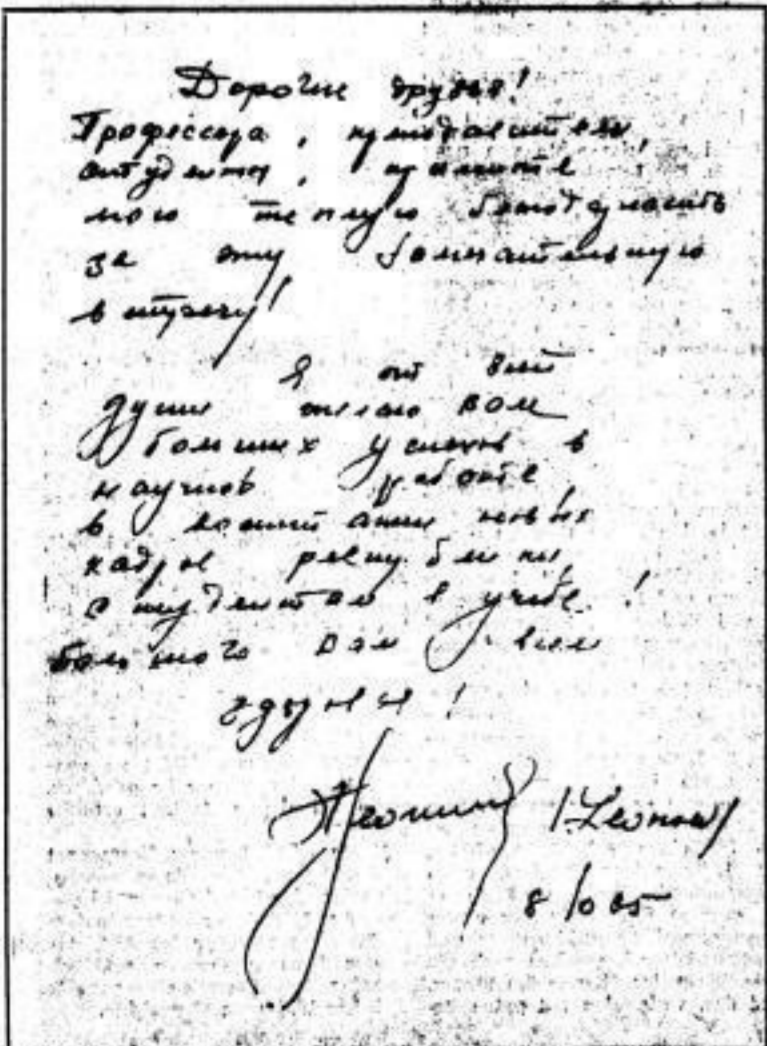 Дорогие друзья!
Профессора, преподаватели,
студенты, примите
мою теплую благодарность
за эту замечательную
встречу!
Я от всей
души желаю вам
больших успехов в
научной работе,
в воспитании новых
кадров республики,
студентам в учебе!
Большого вам всем
здоровья!
Леонов /Leonow/
8/